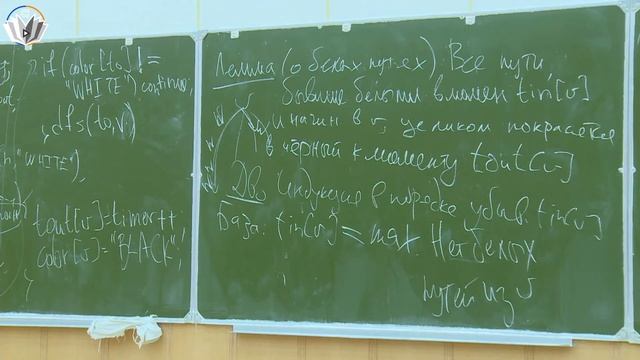 if (color[to] !=
"WHITE") continue;
dfs(to, v)
"WHITE"),
tout[v]=timer++
color[v]="BLACK";
Лемма (о белых путях). Все пути,
бывшие белыми в момент tin[v]
и начин в v, целиком покрасятся
в чёрный к моменту tout[v]
W
W
W
Д-во Индукция в порядке убыв. tin[v]
База: tin[v] = max. Нет белых
путей из v